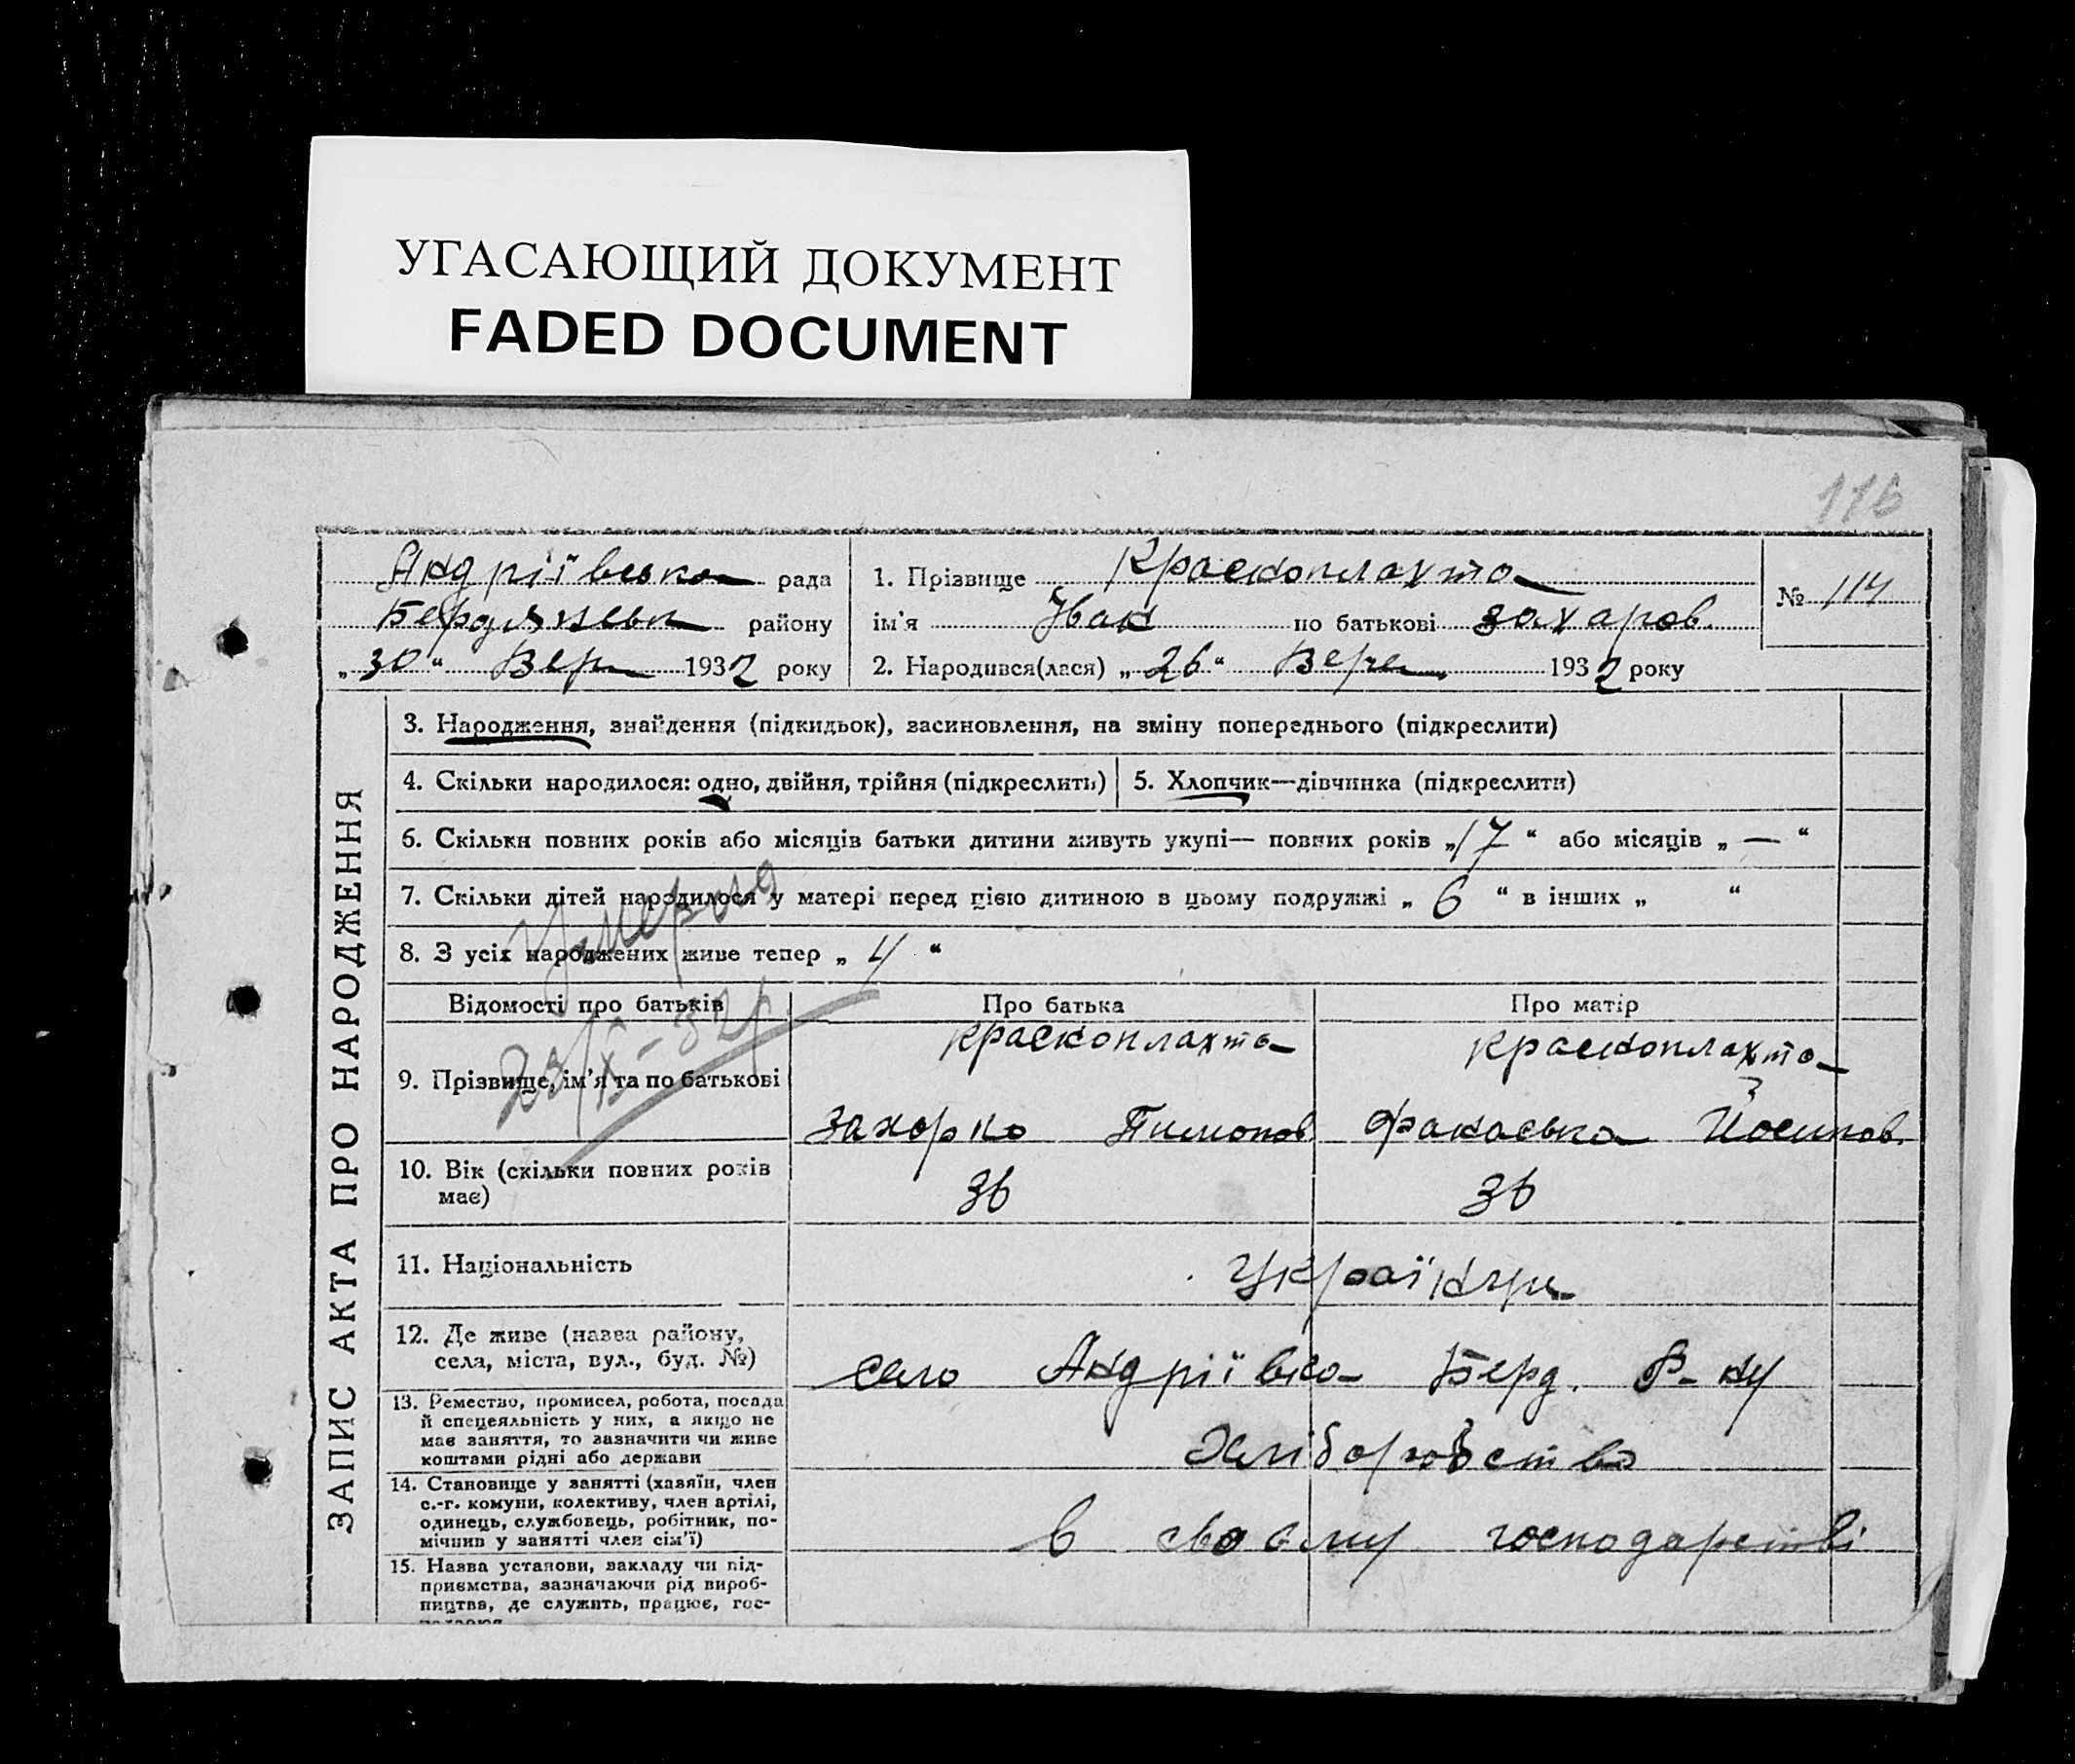 УГАСАЮЩИЙ ДОКУМЕНТ
FADED DOCUMENT
116
Андріївська рада
Бердянськ району
„30“ Вер 1932 року
1. Прізвище Красноплахта
ім'я Іван по батькові Захаров.
2. Народився(лася) „26“ Вере 1932 року
№ 114
ЗАПИС АКТА ПРО НАРОДЖЕННЯ
3. Народження, знайдення (підкидьок), засиновлення, на зміну попереднього (підкреслити)
4. Скільки народилося: одно, двійня, трійня (підкреслить)
5. Хлопчик—дівчинка (підкреслити)
6. Скільки повних років або місяців батьки дитини живуть укупі— повних років „17“ або місяців „—“
7. Скільки дітей народилося у матері перед цією дитиною в цьому подружжі „6“ в інших „ “
8. З усіх народжених живе тепер „4“
Умерла
23/X-32р
Відомості про батьків
Про батька
Про матір
9. Прізвище, ім'я та по батькові
Красноплахта
Захарко Тимопов
Красноплахта
Йосипов.
10. Вік (скільки повних років
має)
36
36
11. Національність
Українци
12. Де живе (назва району,
села, міста, вул., буд. №)
село Андріївка Берд. Р-ну
13. Ремество, промисел, робота, посада
й спецеяльність у них, а якщо не
має заняття, то зазначити чи живе
коштами рідні або держави
Хліборобство
14. Становище у занятті (хазяїн, член
с.-г. комуни, колективу, член артілі,
одинець, службовець, робітник, по-
мічник у занятті член сім'ї)
в своєму господарстві
15. Назва установи, закладу чи під-
приємства, зазначаючи рід вироб-
ництва, де служить, працює, гос-